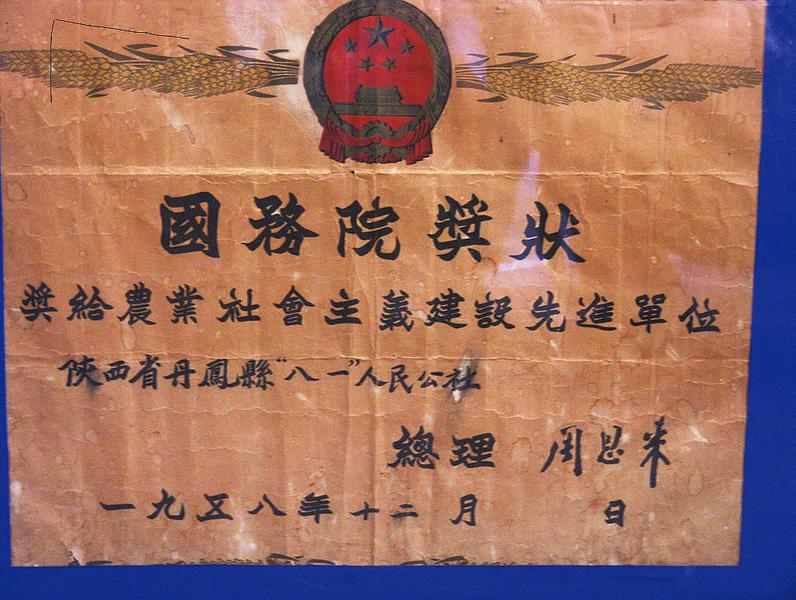 國務院獎狀
獎給農業社會主義建設先進單位
陝西省丹鳳縣"八一"人民公社
總理 周恩来
一九五八年十二月 日